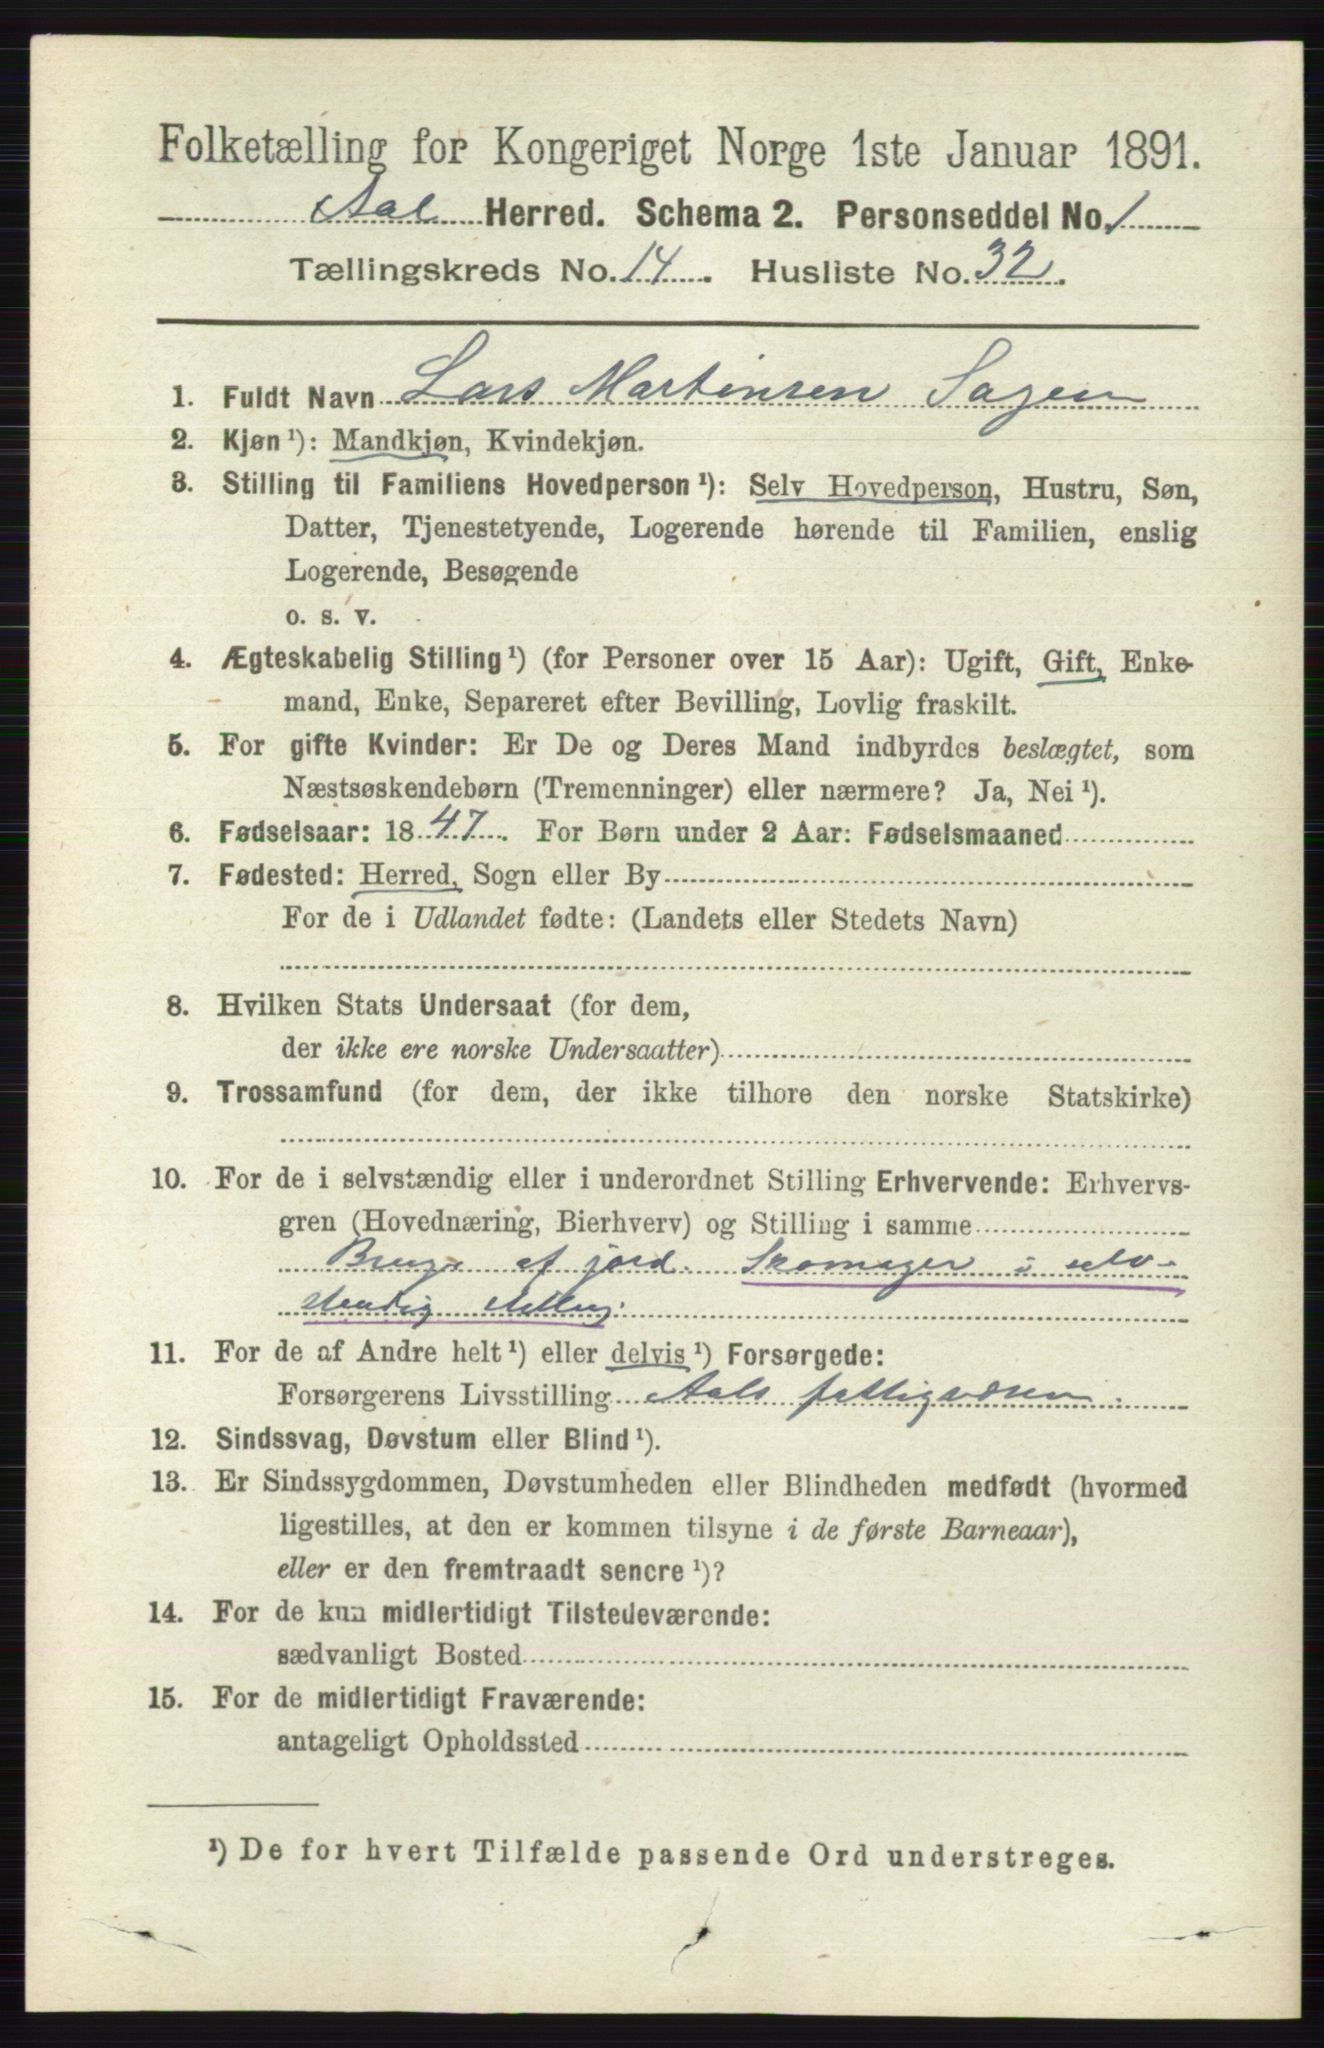 Folketælling for Kongeriget Norge 1ste Januar 1891.
Aal Herred. Schema 2. Personseddel No. 1
Tællingskreds No. 14. Husliste No. 32.
1. Fuldt Navn Lars Martinsen Sagen
2. Kjøn ¹): Mandkjøn, Kvindekjøn.
3. Stilling til Familiens Hovedperson ¹): Selv Hovedperson, Hustru, Søn,
Datter, Tjenestetyende, Logerende hørende til Familien, enslig
Logerende, Besøgende
o. s. v.
4. Ægteskabelig Stilling ¹) (for Personer over 15 Aar): Ugift, Gift, Enke-
mand, Enke, Separeret efter Bevilling, Lovlig fraskilt.
5. For gifte Kvinder: Er De og Deres Mand indbyrdes beslægtet, som
Næstsøskendebørn (Tremenninger) eller nærmere? Ja, Nei ¹).
6. Fødselsaar: 1847. For Børn under 2 Aar: Fødselsmaaned
7. Fødested: Herred, Sogn eller By
For de i Udlandet fødte: (Landets eller Stedets Navn)
8. Hvilken Stats Undersaat (for dem,
der ikke ere norske Undersaatter)
9. Trossamfund (for dem, der ikke tilhore den norske Statskirke)
10. For de i selvstændig eller i underordnet Stilling Erhvervende: Erhvervs-
gren (Hovednæring, Bierhverv) og Stilling i samme
Bruger af jord. Skomager i selv-
stændig stilling.
11. For de af Andre helt ¹) eller delvis ¹) Forsørgede:
Forsørgerens Livsstilling Aals fattigvæsen.
12. Sindssvag, Døvstum eller Blind ¹).
13. Er Sindssygdommen, Døvstumheden eller Blindheden medfødt (hvormed
ligestilles, at den er kommen tilsyne i de første Barneaar),
eller er den fremtraadt senere ¹)?
14. For de kun midlertidigt Tilstedeværende:
sædvanligt Bosted
15. For de midlertidigt Fraværende:
antageligt Opholdssted
¹) De for hvert Tilfælde passende Ord understreges.